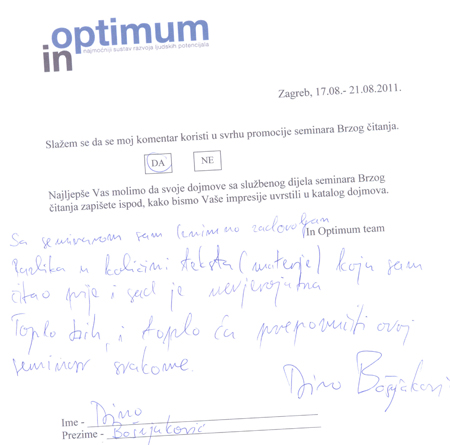 in optimum
najmoćniji sustav razvoja ljudskih potencijala
Zagreb, 17.08.- 21.08.2011.
Slažem se da se moj komentar koristi u svrhu promocije seminara Brzog čitanja.
DA NE
Najljepše Vas molimo da svoje dojmove sa službenog dijela seminara Brzog
čitanja zapišete ispod, kako bismo Vaše impresije uvrstili u katalog dojmova.
Sa seminarom sam iznimno zadovoljan
In Optimum team
Razlika u količini teksta (materije) koju sam
čitao prije i sad je nevjerojatna
Toplo bih, i toplo ću preporučiti ovaj
seminar svakome.
Dino Bošnjaković
Ime - Dino
Prezime - Bošnjaković